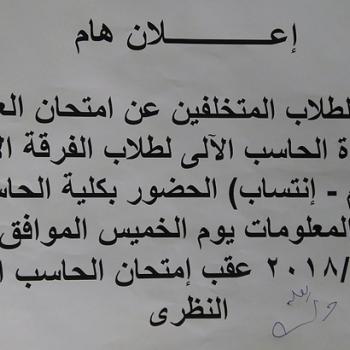 إعــــــلان هام
لطلاب المتخلفين عن امتحان
الحاسب الآلى لطلاب الفرقة
- إنتساب) الحضور بكلية
المعلومات يوم الخميس الموافق
/٢٠١٨ عقب إمتحان الحاسب
النظرى